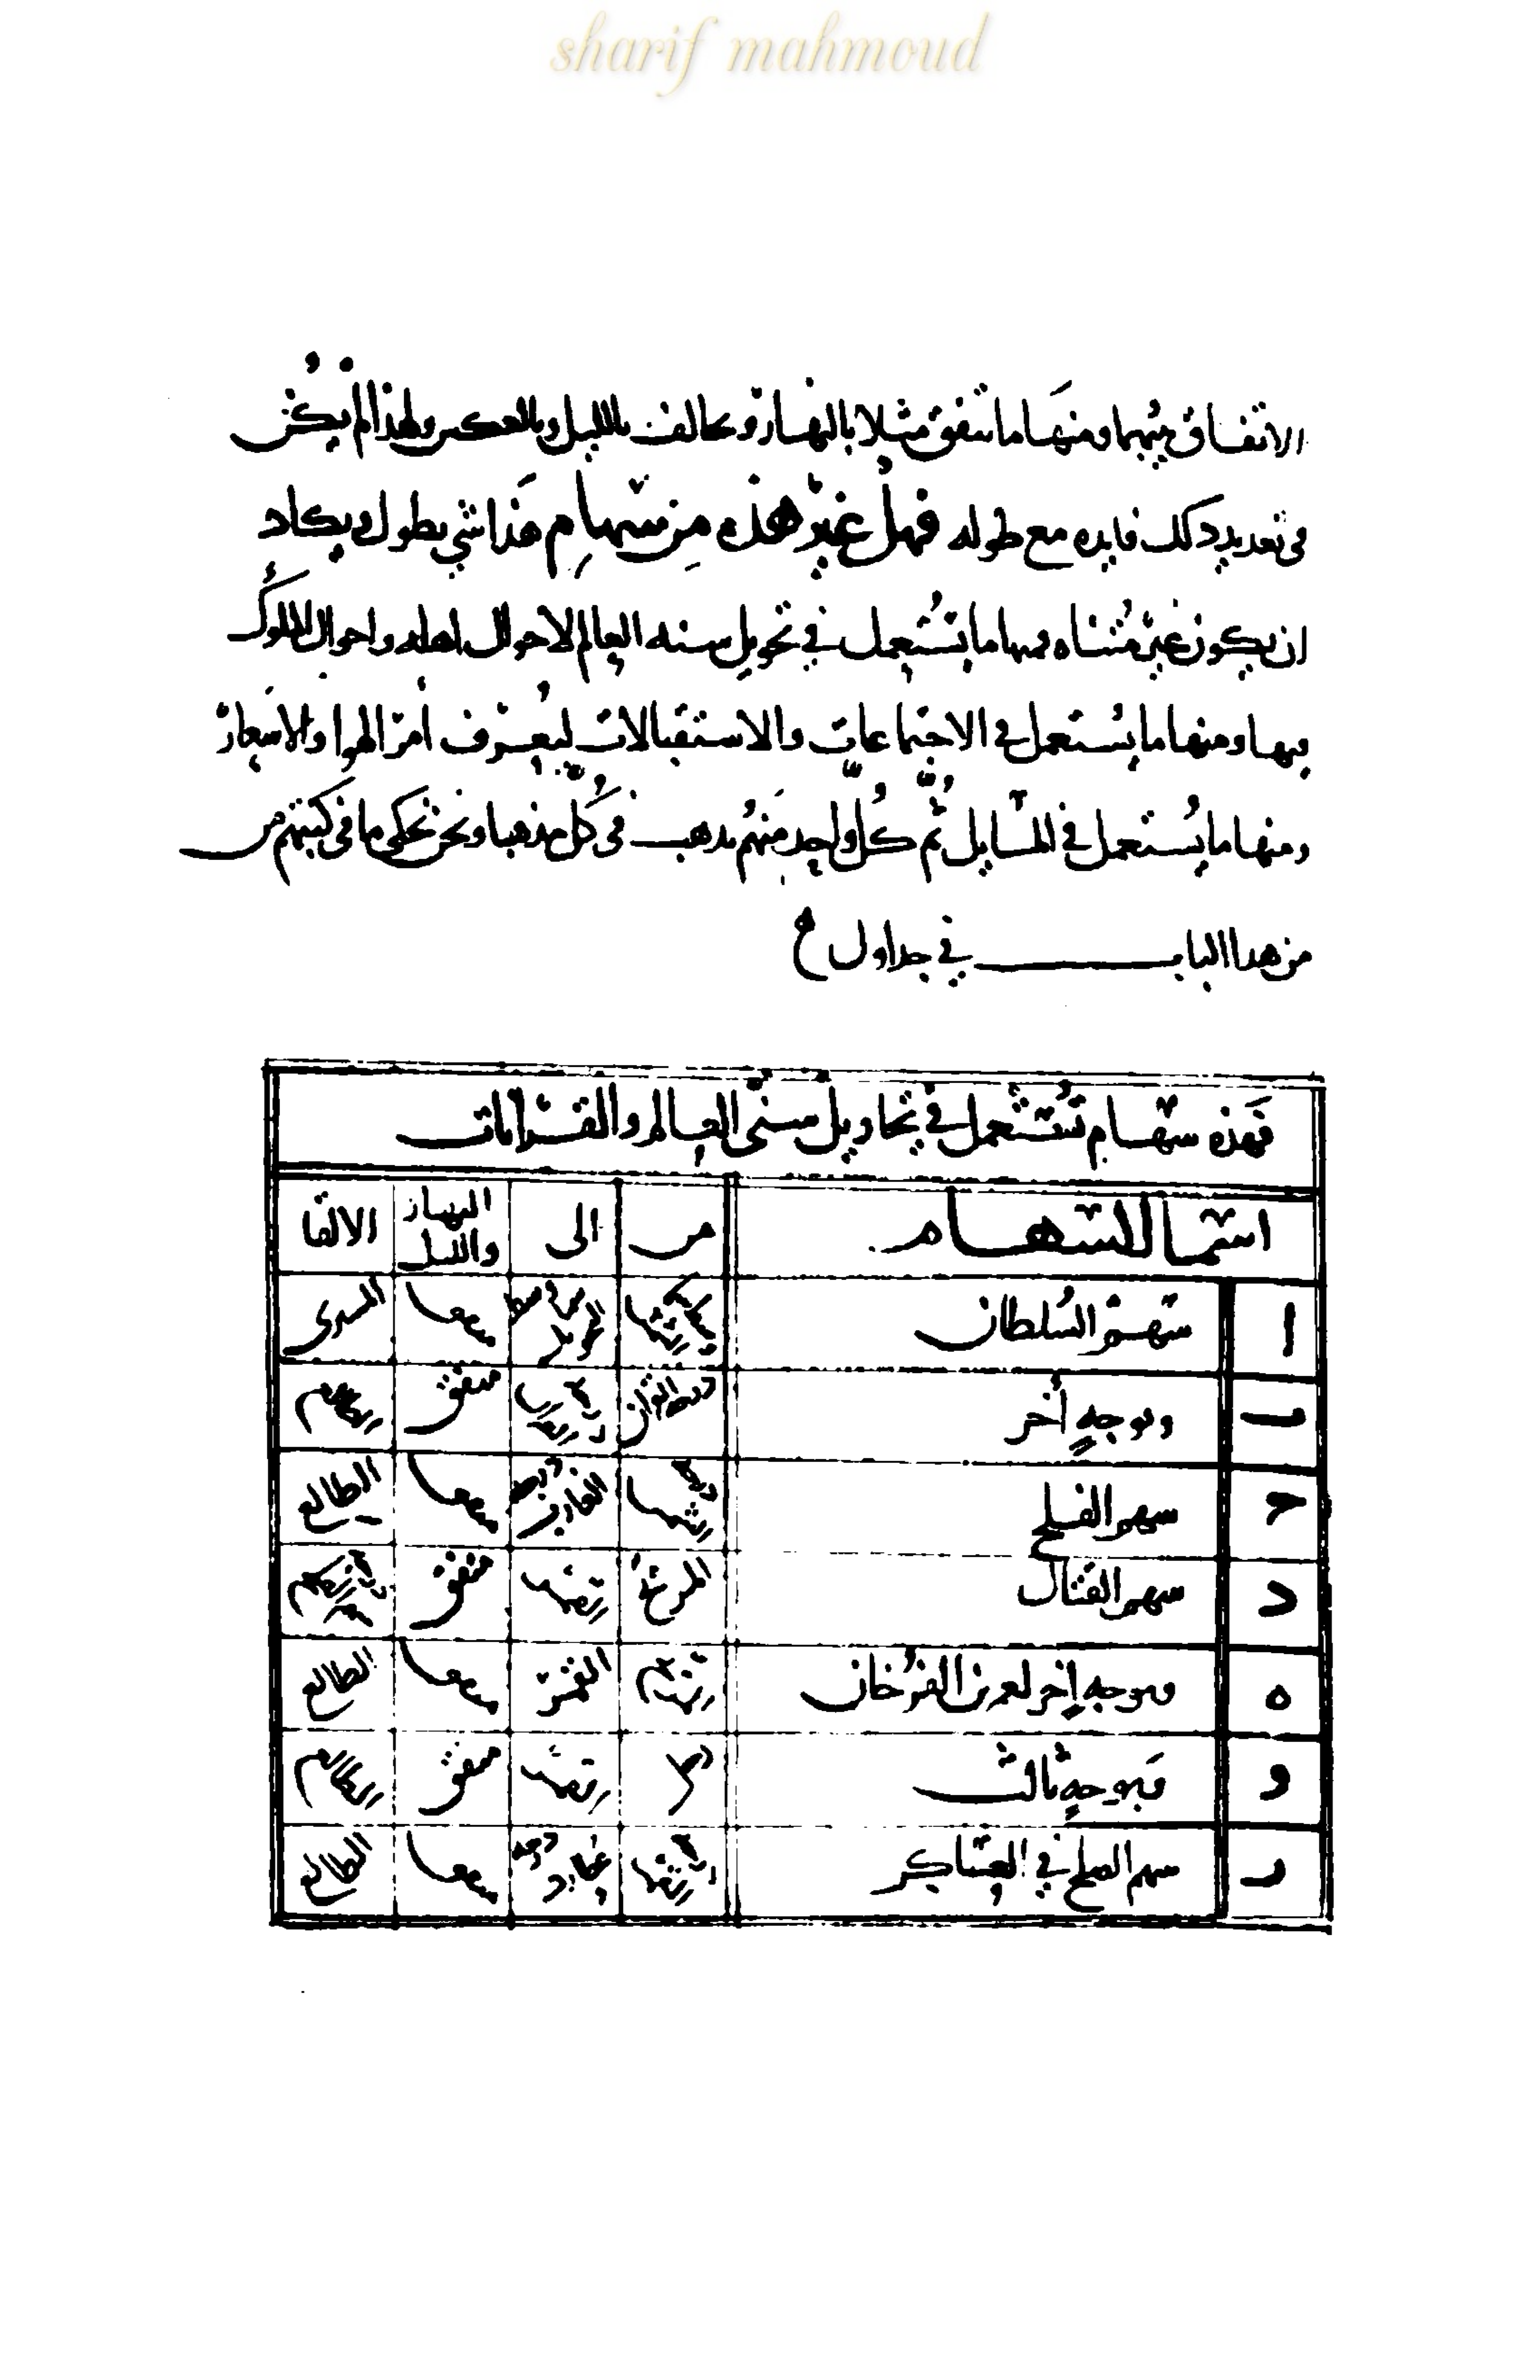 sharif mahmoud
الاتفاق بينهما ومنها ما يتفق مثلا بالنهار ويخالف بالليل وبالعكس ولهذا لم يكن
في تعديد ذلك فايده مع طوله فهل غير هذه من سهام هذا شي يطول ويكاد
ان يكون غير متناه فمنها ما يستعمل في تحويل سنه العالم لاحوال اهله واحوال الملوك
فيها ومنها ما يستعمل في الاجتماعات والاستقبالات ليعرف امر الهوا والاسعار
ومنها ما يستعمل في المسايل ثم كل واحد منهم يذهب في كل مذهبا ونحن نحكي ما في كتبهم من
من هذا الباب في جداول
فهذه سهام تستعمل في تحاويل سني العالم والقرانات
اسما السهام من الى النهار والليل الالقا
ا سهم السلطان
ب وبوجه اخر متفق
ح سهم الفلح الطالع
د سهم القتال المريخ متفق
ه وبوجه اخر لعمر بن الفرخان القمر الطالع
و وبوجه ثالث متفق
ر سهم الصلح في العساكر الطالع